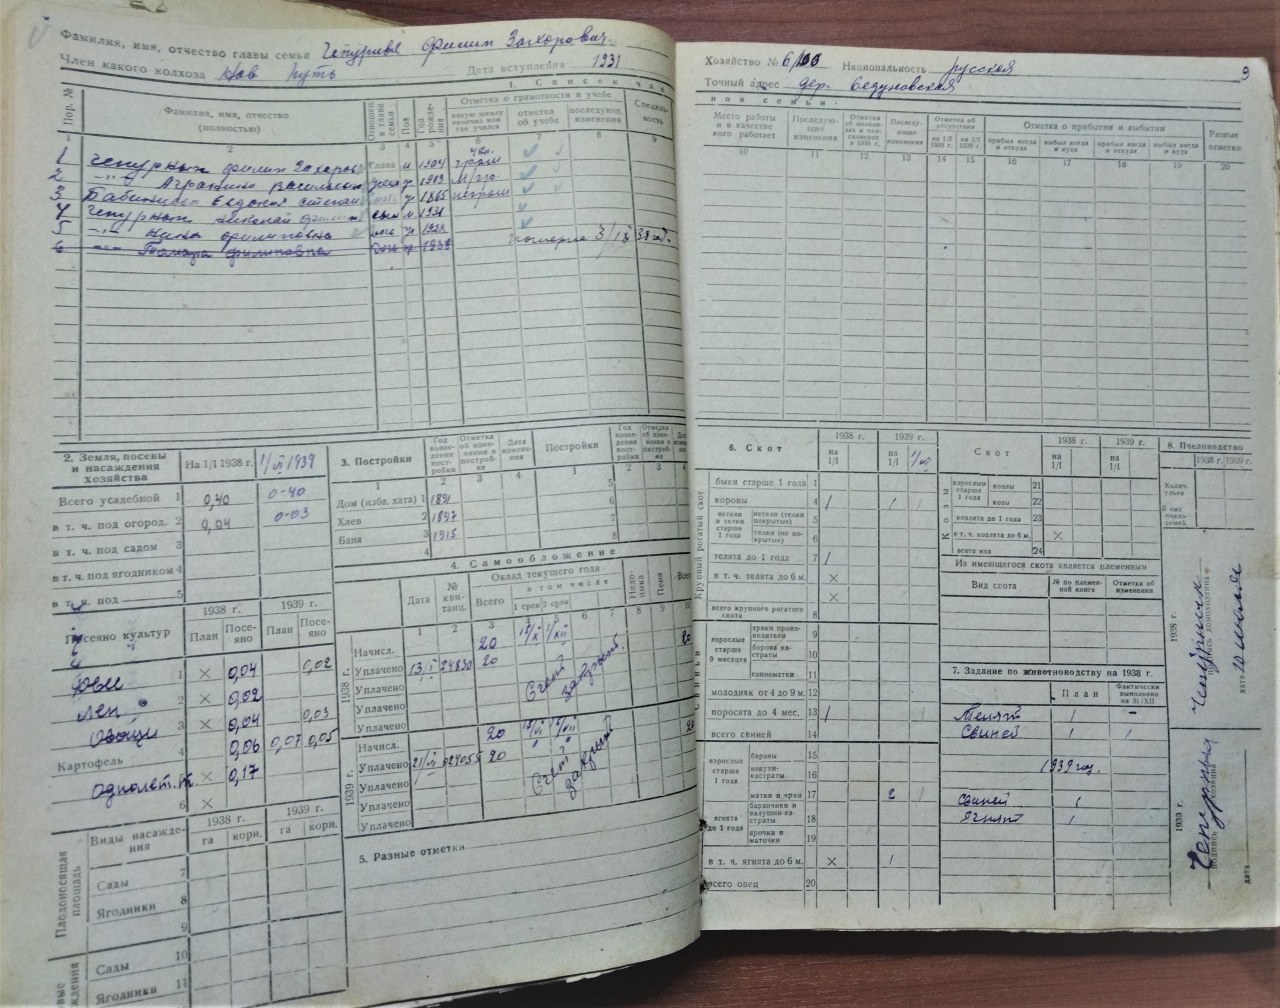 Фамилия, имя, отчество главы семьи Чепурных Филип Захорович
Член какого колхоза Нов Путь Дата вступления 1931
I. Список чле
Пор. №
Фамилия, имя, отчество (полностью)
Пол
Год рождения
Отметка о грамотности и учебе
отметка об учебе
последующ. изменения
Специальность
1 2 3 4 5 6 8 9
1 Чепурных Филип Захоров Глава м 1904
2 -"- Аграфина Васильевн жена ж 1903 м/гр.
3 Евдокия Степан ж 1865 неграм
4 Чепурных Николай Филип сын м 1931
5 -"- Нина Филиповна дочь ж 1928
6 -"- Тамара Филиповна дочь ж 1938
2. Земля, посевы и насаждения хозяйства
На 1/I 1938 г. 1/VI 1939
Всего усадебной 1 0,40 0-40
в т. ч. под огород. 2 0,04 0-03
в т. ч. под садом 3
в т. ч. под ягодником 4
в т. ч. под 5
Посеяно культур
1938 г. 1939 г.
План Посеяно План Посеяно
1 × 0,04 0,02
Лен 2 × 0,02
Овощи 3 × 0,04 0,03
Картофель 4 0,06 0,07 0,05
Однолет. × 0,17
6 ×
Плодоносящая площадь
Виды насаждения
1938 г. 1939 г.
га корн. га корн.
7
Сады 8
Ягодники
9
Сады 10
Ягодники 11
3. Постройки
Отметка об измен. в постройке
Дата изменения
Постройки
1 2 3 4 1 2 3 4
Дом (изба, хата) 1 1891 5
Хлев 2 1897 6
Баня 3 1915 7
4 8
4. Самообложение
Дата
№ квитанц.
Оклад текущего года
Всего
в том числе
1 срок 2 срок
Недоимка
Пеня
1 2 3 4 5 6 7 8 9
1938 г.
Начисл. 20 15/X 1/XII 20
Уплачено 13/ 24830 20
Уплачено Счет закрыт.
Уплачено
Уплачено
1939 г.
Начисл. 20 20
Уплачено 21/VI 024055 20
Уплачено Счет закрыт
Уплачено
Уплачено
5. Разные отметки
Хозяйство № 6/100 Национальность русская 9
Точный адрес дер. Седуновская
нов семьи
Место работы и в качестве кого работает
Последующие изменения
Последующие изменения
Отметка об отсутствии
на 1/I 1938 г. на 1/I 1939 г.
Отметка о прибытии и выбытии
прибыл когда и откуда выбыл когда и куда прибыл когда и откуда выбыл когда и куда
Разные отметки
10 11 12 13 14 15 16 17 18 19 20
6. Скот
1938 г. 1939 г.
на 1/I на 1/I
Крупный рогатый скот
быки старше 1 года 1
коровы 4 / /
нетели и телки старше 1 года
нетели (телки покрытые) 5
телки (не покрытые) 6
телята до 1 года 7 /
в т. ч. телята до 6 м. ×
×
всего крупного рогатого скота 8
Свиньи
взрослые старше 9 месяцев
хряки производители 9
борова кастраты 10
свиноматки 11
молодняк от 4 до 9 м. 12
поросята до 4 мес. 13 /
всего свиней 14
взрослые старше 1 года
бараны 15
валухи-кастраты 16
матки и ярки 17 2
ягнята до 1 года
баранчики и валушки-кастраты 18
ярочки и маточки 19
в т. ч. ягнята до 6 м. × 1
всего овец 20
Скот
1938 г. 1939 г.
на 1/I на 1/I
Козы
взрослые старше 1 года
козлы 21
козы 22
козлята до 1 года 23
в т. ч. козлята до 6 м. ×
всего коз 24
Из имеющегося скота является племенным
Вид скота
№ по племенной книге
Отметка об изменении
7. Задание по животноводству на 1938 г.
План
Фактически выполнено на 31/XII
Телят 1 -
Свиней 1 1
1939 год.
Свиней 1
Ягнят 1
8. Пчеловодство
1938 г. 1939 г.
Колич. ульев
В них пчелосемей
1938 г.
Чепурных
подпись домохозяина
дата 10 июля
1939 г.
Чепурных
подпись хозяина
дата